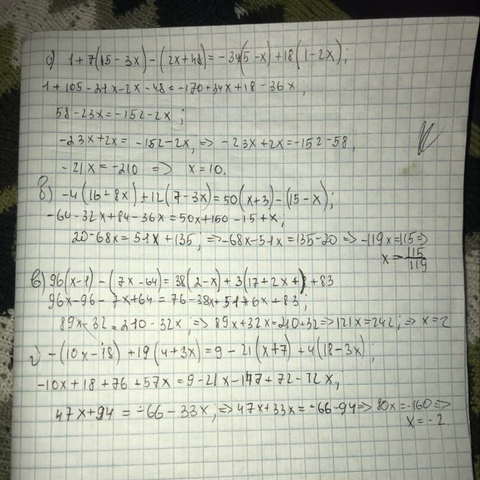 а) 1+7(15-3x)-(2x+48)=-34(5-x)+18(1-2x);
1+105-21x-2x-48=-170+34x+18-36x;
58-23x=-152-2x;
-23x+2x=-152-2x, => -23x+2x=-152-58,
-21x=-210 => x=10.
б) -4(16+8x)+12(7-3x)=50(x+3)-(15-x);
-64-32x+84-36x=50x+150-15+x;
20-68x=51x+135; => -68x-51x=135-20 => -119x=115 =>
x=-115/119
в) 96(x-1)-(7x-64)=38(2-x)+3(17+2x+)+83
96x-96-7x+64=76-38x+51+6x+83;
89x-32=210-32x, => 89x+32x=210+32 => 121x=242; => x=2
г) -(10x-18)+19(4+3x)=9-21(x+7)+4(18-3x);
-10x+18+76+57x=9-21x-147+72-12x,
47x+94=-66-33x; => 47x+33x=-66-94 => 80x=-160 =>
x=-2